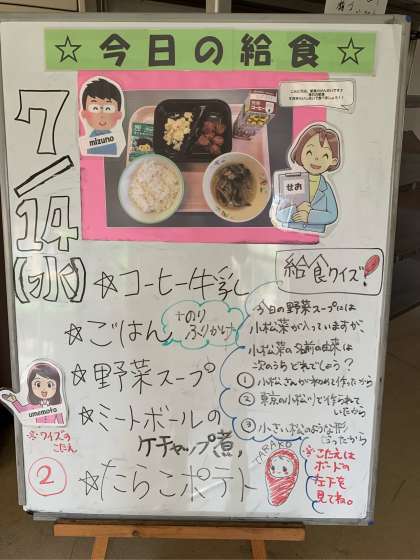 ☆今日の給食☆
7/14(水)
mizuno
せお
☆コーヒー牛乳
☆ごはん
+のり
ふりかけ
☆野菜スープ
☆ミートボールの
ケチャップ煮
☆たらこポテト
給食クイズ!
今日の野菜スープには
小松菜が入っていますが、
小松菜の名前の由来は
次のうちどれでしょう?
① 小松さんが初めて作ったから
② 東京の小松川で作られて
いたから
③ 小さい松のような形
だったから
TARAKO
※こたえは
ボードの
左下を
見てね。
umemoto
※クイズの
こたえ
②